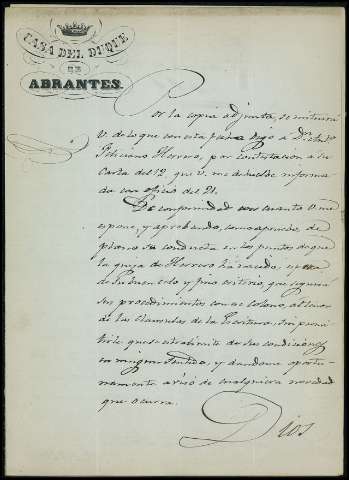 CASA DEL DUQUE
DE
ABRANTES.
Por la copia adjunta, se enterará
V. de lo que con esta fecha digo a Dn.
Feliciano Herrero, por contestacion a su
carta del 12, que V. me devuelve informa-
da con oficio del 21.
De conformidad con cuanto V. me es-
pone, y aprobando, como apruebo, de
plano su conducta en los puntos de que
la queja de Herrero ha nacido, espero
de su buen celo y fino criterio, que seguirá
sus procedimientos con ese colono, al tenor
de las clausulas de la Escritura, sin permi-
tirle que se extralimite de sus condiciones
en ningun sentido, y dandome oportu-
namente aviso de cualquiera novedad
que ocurra.
Dios